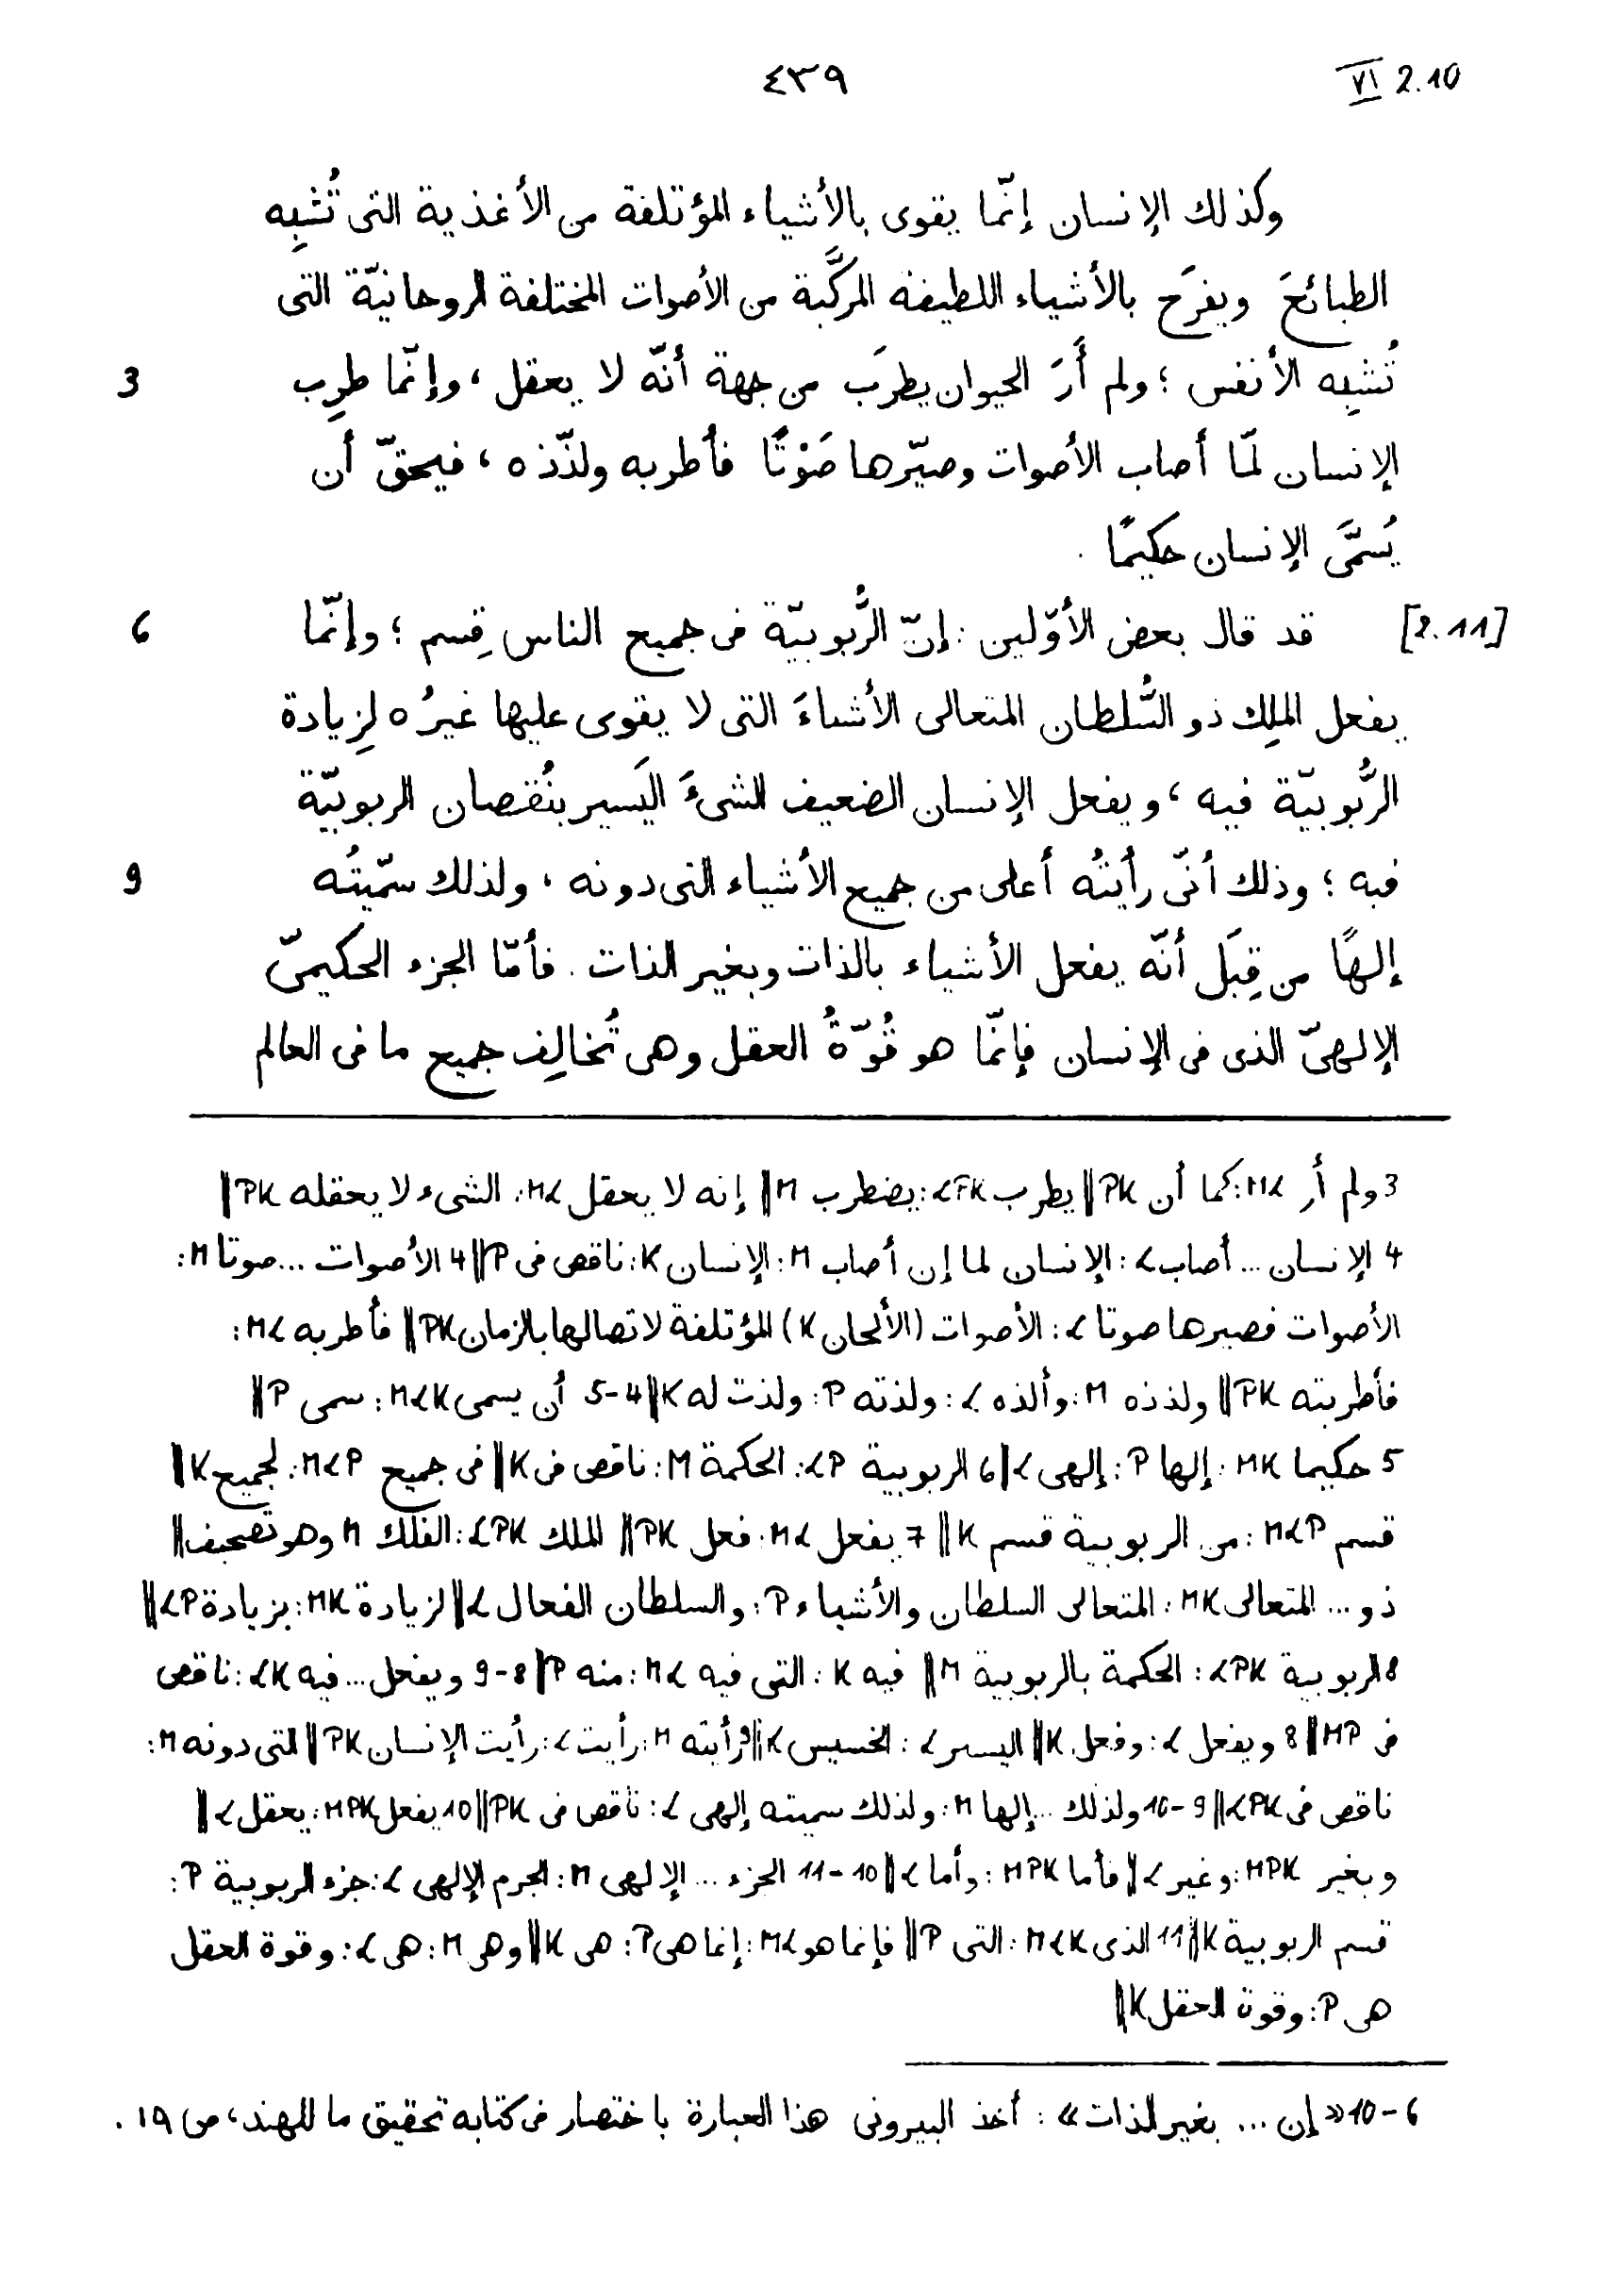 ٤٣٩
VI 2.10
وكذلك الإنسان إنّما يقوى بالأشياء المؤتلفة من الأغذية التى تُشبِه
الطبائعَ ويفرَح بالأشياء اللطيفة المركَّبة من الأصوات المختلفة الروحانيّة التى
3 تُشبِه الأنفس ؛ ولم أَرَ الحيوان يطرَب من جهة أنّه لا يعقل ، وإنّما طرِب
الإنسان لمّا أصاب الأصوات وصيّرها صَوْتًا فأطربه ولذّذه ، فيحقّ أن
يُسمَّى الإنسان حكيمًا .
6 [2.11] قد قال بعض الأوّلين : إنّ الرُّبوبيّة فى جميع الناس قِسم ؛ وإنّما
يفعل الملِك ذو السُّلطان المتعالى الأشياءَ التى لا يقوى عليها غيرُه لِزيادة
الرُّبوبيّة فيه ، ويفعل الإنسان الضعيف الشىءَ اليَسير بنُقصان الربوبيّة
9 فيه ؛ وذلك أنّى رأيتُه أعلى من جميع الأشياء التى دونه ، ولذلك سمّيتُه
إلهًا من قِبَل أنّه يفعل الأشياء بالذات وبغير الذات . فأمّا الجزء الحكيمىّ
الإلهىّ الذى فى الإنسان فإنّما هو قُوّةُ العقل وهى تُخالِف جميع ما فى العالم
3 ولم أر ML: كما أن PK || يطرب LPK: يضطرب M || إنه لا يعقل ML: الشىء لا يعقله PK ||
4 الإنسان ... أصاب L: الإنسان لما إن أصاب M: الإنسان K: ناقص فى P || 4 الأصوات ... صوتا M:
الأصوات فصيرها صوتا L: الأصوات (الألحان K) المؤتلفة لاتصالها بالزمان PK || فأطربه ML:
فأطربته PK || ولذذه M: وألذه L: ولذته P: ولذت له K || 4-5 أن يسمى MLK: سمى P ||
5 حكيما MK: إلها P: إلهى L || 6 الربوبية LP: الحكمة M: ناقص فى K || فى جميع MLP: لجميع K ||
قسم MLP: من الربوبية قسم K || 7 يفعل ML: فعل PK || الملك LPK: الفلك M وهو تصحيف ||
ذو ... المتعالى MK: المتعالى السلطان والأشياء P: والسلطان الفعال L || لزيادة MK: بزيادة LP ||
8 الربوبية LPK: الحكمة بالربوبية M || فيه K: التى فيه ML: منه P || 8-9 ويفعل ... فيه LK: ناقص
فى MP || 8 ويفعل L: وفعل K || اليسير L: الخسيس K || 9 رأيته M: رأيت L: رأيت الإنسان PK || التى دونه M:
ناقص فى LPK || 9-10 ولذلك ... إلها M: ولذلك سميته إلهى L: ناقص فى PK || 10 يفعل MPK: يعقل L ||
وبغير MPK: وغير L || فأما MPK: وأما L || 10-11 الجزء ... الإلهى M: الجرم الإلهى L: جزء الربوبية P:
قسم الربوبية K || 11 الذى MLK: التى P || فإنما هو ML: إنما هى P: هى K || وهى M: هى L: وقوة العقل
هى P: وقوة العقل K ||
6-10 «إن ... بغير الذات» : أخذ البيرونى هذا العبارة باختصار فى كتابه تحقيق ما للهند، ص ١٩ .